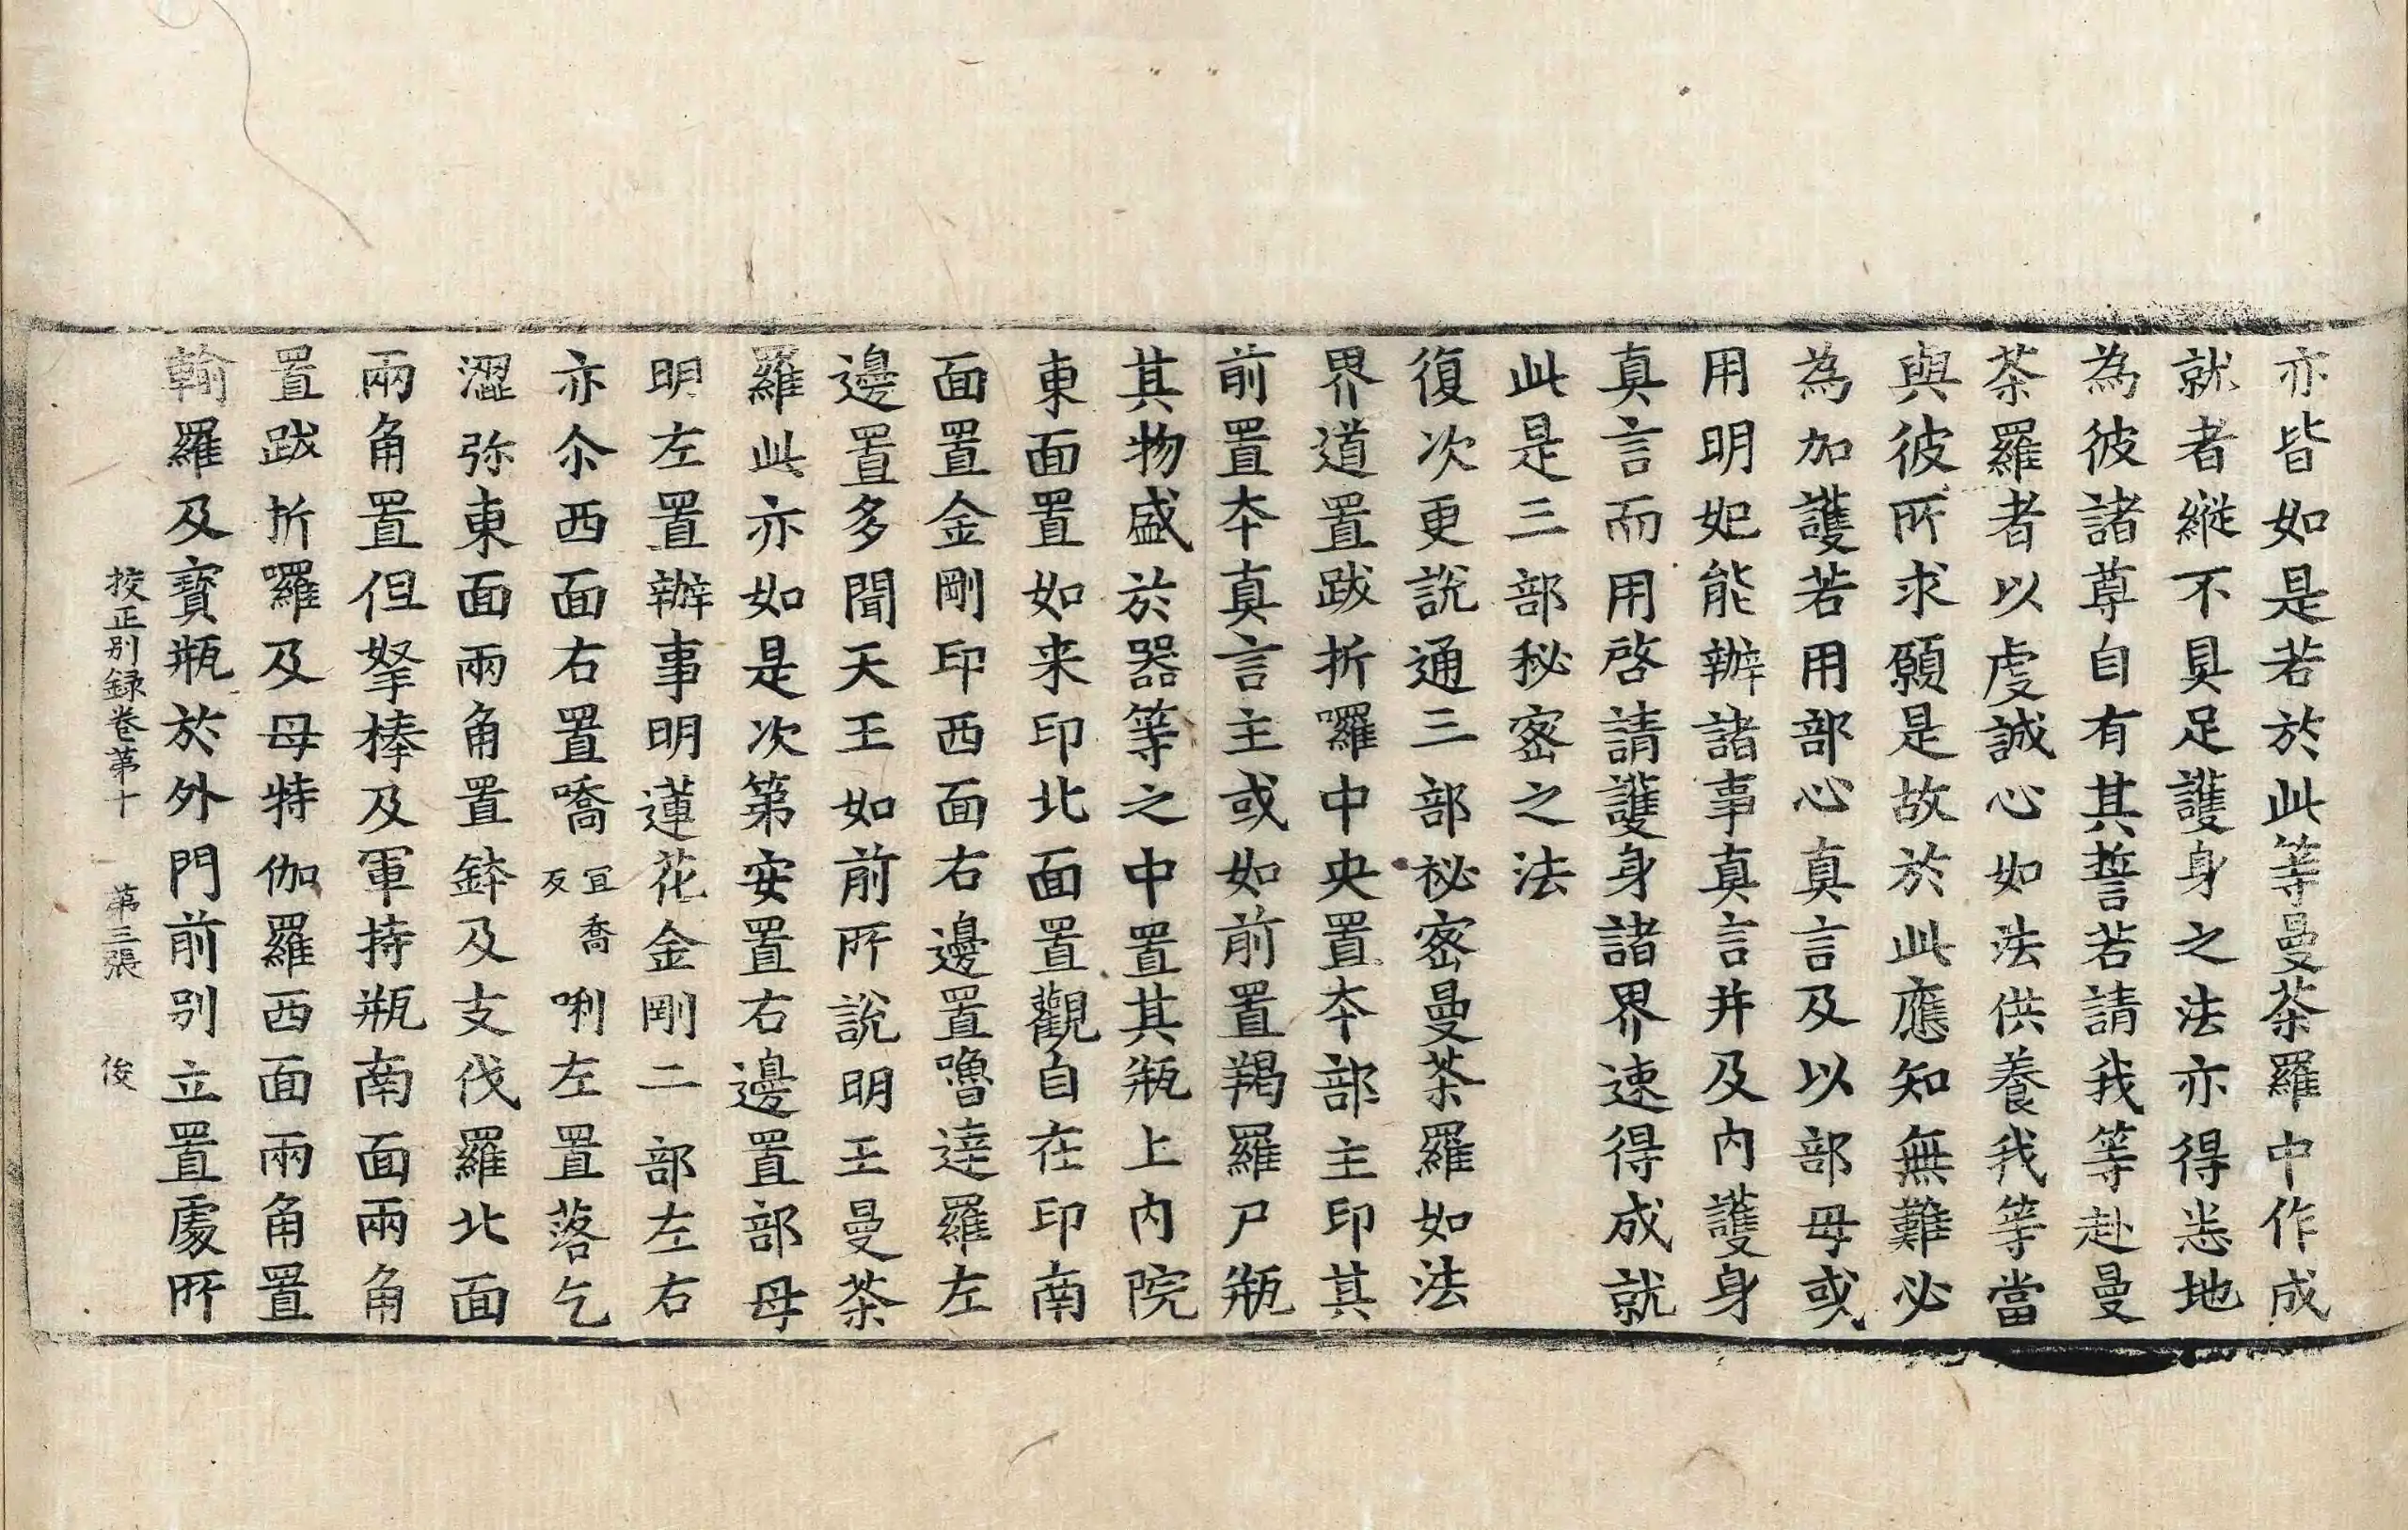 亦皆如是若於此等曼荼羅中作成
就者縱不具足護身之法亦得悉地
為彼諸尊自有其誓若請我等赴曼
荼羅者以虔誠心如法供養我等當
與彼所求願是故於此應知無難必
為加護若用部心真言及以部母或
用明妃能辦諸事真言并及内護身
真言而用啓請護身諸界速得成就
此是三部秘密之法
復次更說通三部秘密曼荼羅如法
界道置跋折囉中央置夲部主印其
前置夲真言主或如前置羯羅尸瓶
其物盛於器等之中置其瓶上内院
東面置如来印北面置觀自在印南
面置金剛印西面右邊置嚕達羅左
邊置多聞天王如前所說明王曼荼
羅此亦如是次第安置右邊置部母
明左置辦事明蓮花金剛二部左右
亦尒西面右置嗋宜喬反唎左置落乞
澀弥東面兩角置鉢及支伐羅北面
兩角置但拏棒及軍持瓶南面兩角
置跋折囉及母特伽羅西面兩角置
輸羅及寶瓶於外門前別立置處所
校正別録卷苐十 苐三張 俊